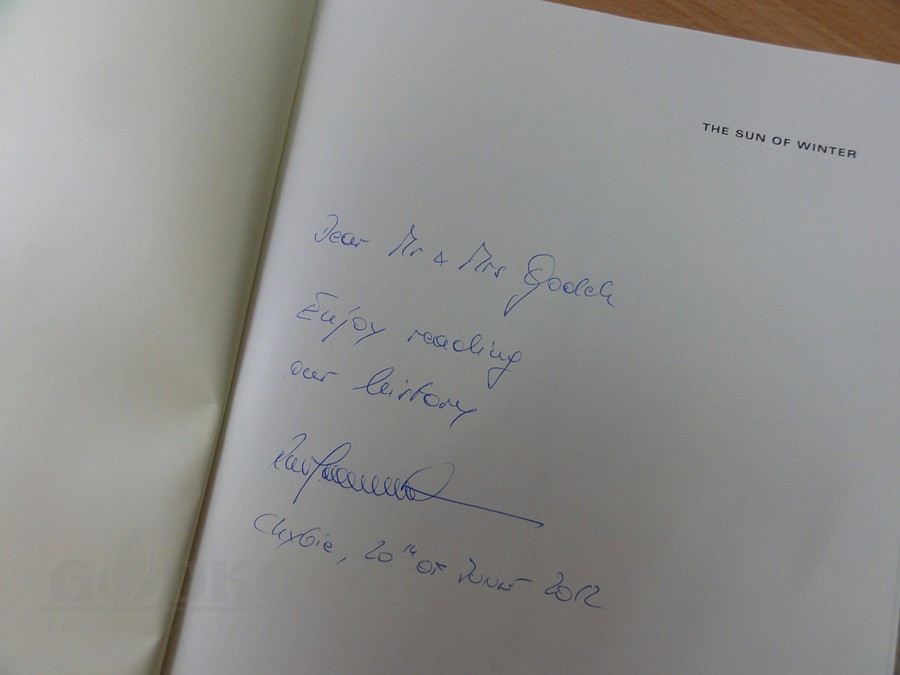 THE SUN OF WINTER
Dear Mr & Mrs Goodch
Enjoy reading
our history
20th of June 2012